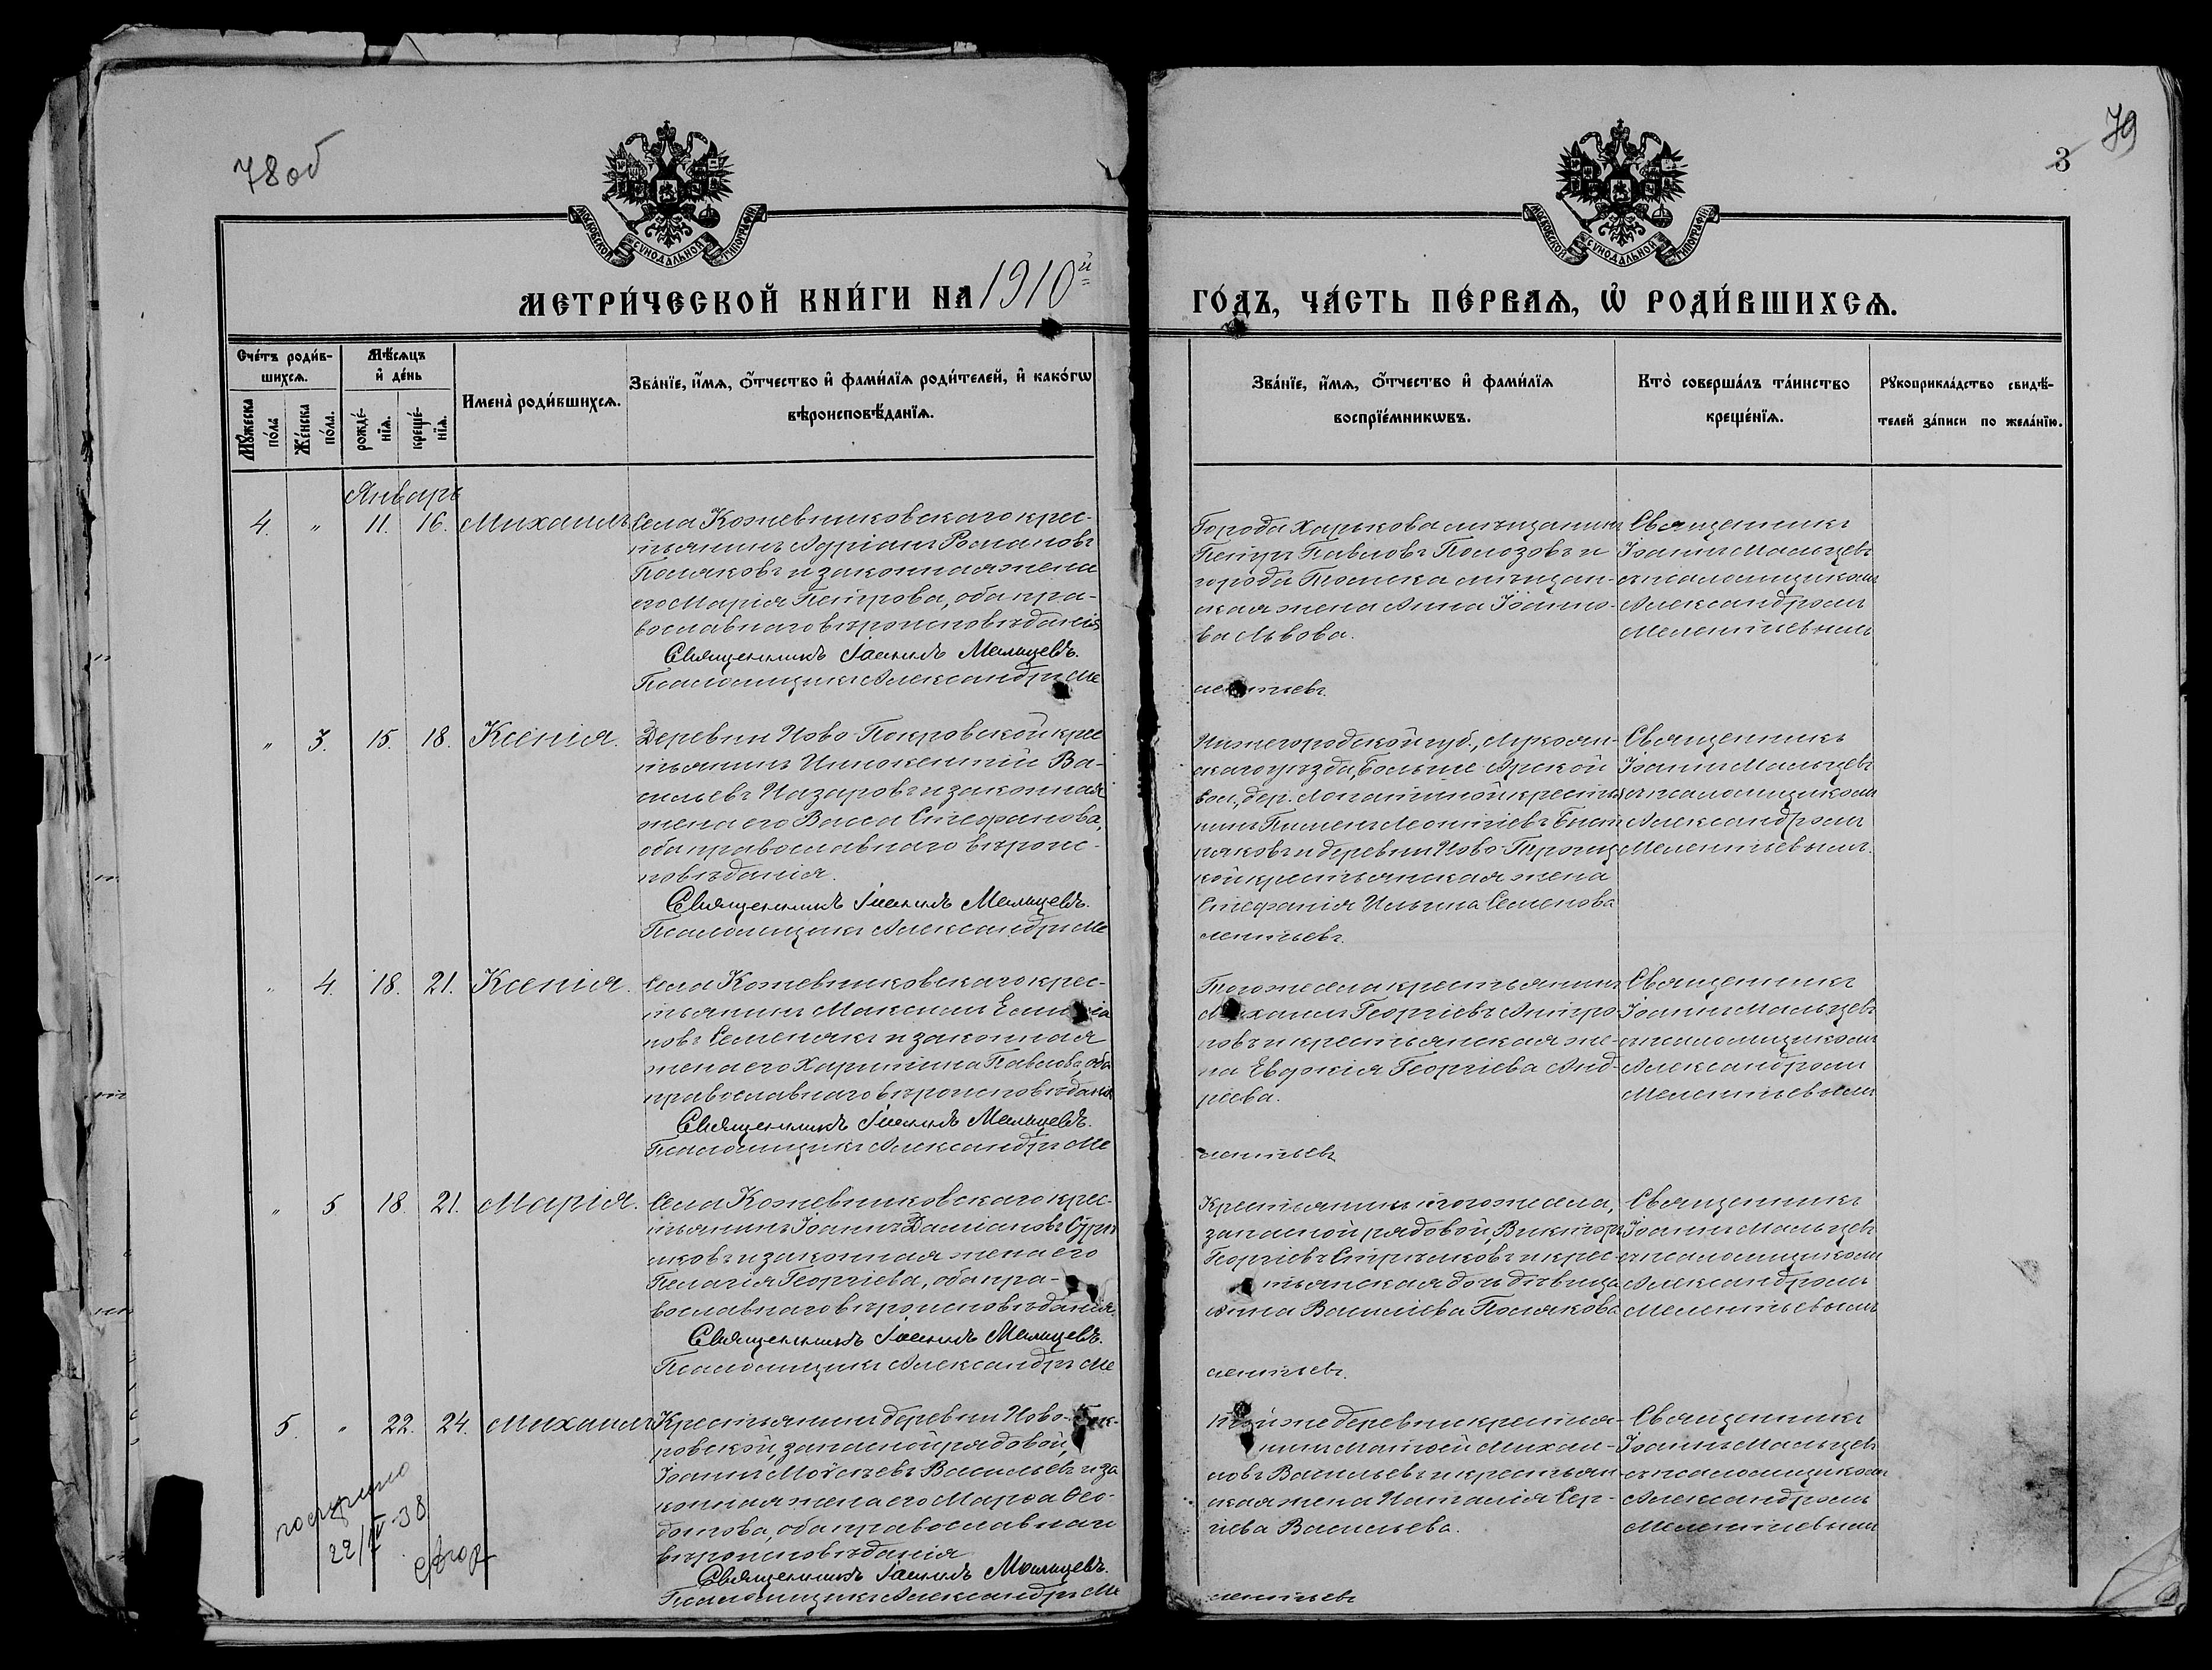 78 об
79
3
МОСКОВСКОЙ СѴНОДАЛЬНОЙ ТИПОГРАФІИ
МОСКОВСКОЙ СѴНОДАЛЬНОЙ ТИПОГРАФІИ
МЕТРИ́ЧЕСКОЙ КНИ́ГИ НА 1910й
ГО́ДЪ, ЧА́СТЬ ПЕ́РВАѦ, Ѡ҆ РОДИ́ВШИХСѦ.
Сче́тъ роди́в-
шихсѧ.
Мꙋ́жеска по́ла
Же́нска по́ла.
Мѣ́сѧцъ
и҆ де́нь
рожде́-
нїѧ.
креще́-
нїѧ.
Имена̀ роди́вшихсѧ.
Зва́нїе, и҆́мѧ, ѻ҆́тчество и҆ фами́лїѧ роди́телей, и҆ како́гѡ
вѣроисповѣ́данїѧ.
Зва́нїе, и҆́мѧ, ѻ҆́тчество и҆ фами́лїѧ
воспрїе́мникѡвъ.
Кто̀ соверша́лъ та́инство
креще́нїѧ.
Рꙋкоприкла́дство свидѣ́-
телей за́писи по жела́нїю.
Январь
4. " 11. 16. Михаилъ
Села Кожевниковскаго крес-
тьянинъ Адріанъ Романовъ
Поляковъ и законная жена
его Марія Петрова, оба пра-
вославнаго вѣроисповѣданія
Священникъ Іоаннъ Мальцевъ.
Псаломщикъ Александръ Ме
Города Харькова мѣщанинъ
Петръ Павловъ Полозовъ и
города Томска мѣщан-
ская жена Анна Іоанно-
ва Львова.
лентьевъ.
Священникъ
Іоаннъ Мальцевъ
съ псаломщикомъ
Александромъ
Мелентьевымъ
" 3. 15. 18. Ксенія.
Деревни Ново-Покровской крес
тьянинъ Иннокентій Ва-
сильевъ Назаровъ и законная
жена его Васса Стефанова,
оба православнаго вѣроис-
повѣданія.
Священникъ Іоаннъ Мальцевъ.
Псаломщикъ Александръ Ме
Нижегородской губ., Лукоян-
скаго уѣзда, Больше-Арской
вол., дер. Лопатиной крестья
нинъ Пименъ Леонтіевъ
и деревни Ново-Троиц
кой крестьянская жена
Стефанія Ильина Семенова
лентьевъ.
Священникъ
Іоаннъ Мальцевъ
съ псаломщикомъ
Александромъ
Мелентьевымъ.
" 4. 18. 21. Ксенія.
Села Кожевниковскаго крес-
тьянинъ Максимъ
новъ Семенякъ и законная
жена его Харитина Павлова, оба
православнаго вѣроисповѣданія
Священникъ Іоаннъ Мальцевъ.
Псаломщикъ Александръ Ме
Того же села крестьянинъ
Михаилъ Георгіевъ Антро
повъ и крестьянская же-
на Евдокія Георгіева Анд-
реева.
лентьевъ
Священникъ
Іоаннъ Мальцевъ
съ псаломщикомъ
Александромъ
Мелентьевымъ
" 5 18. 21. Марія.
Села Кожевниковскаго крес-
тьянинъ Іоаннъ Даміановъ
и законная жена его
Пелагія Георгіева, оба пра-
вославнаго вѣроисповѣданія.
Священникъ Іоаннъ Мальцевъ.
Псаломщикъ Александръ Ме
Крестьянинъ того же села,
запасной рядовой, Викторъ
Георгіевъ Стрѣлковъ и крес-
тьянская дочь дѣвица
Анна Василіева Полякова
лентьевъ.
Священникъ
Іоаннъ Мальцевъ
съ псаломщикомъ
Александромъ
Мелентьевымъ
5. " 22. 24. Михаилъ
Крестьянинъ деревни Ново-Пок-
ровской, запасной рядовой,
Іоаннъ Моѵсеевъ Васильевъ и за
конная жена его Марѳа Ѳео-
дотова, оба православнаго
вѣроисповѣданія
Священникъ Іоаннъ Мальцевъ.
Псаломщикъ Александръ Ме
Той же деревни крестья-
нинъ Матѳей Михаи-
ловъ Васильевъ и крестьян
ская жена Наталія Сер-
гіева Васильева.
лентьевъ
Священникъ
Іоаннъ Мальцевъ
съ псаломщикомъ
Александромъ
Мелентьевымъ
22/IV-38